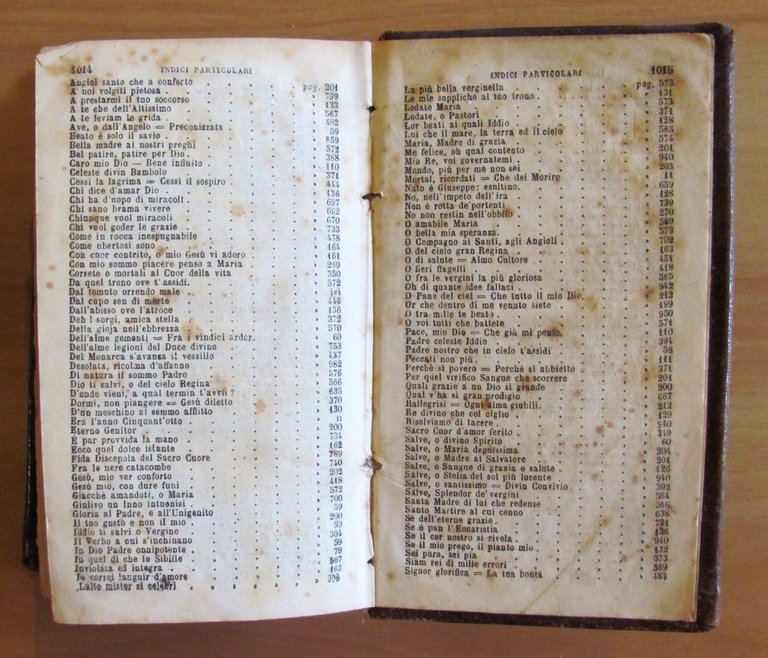 1014 INDICI PARTICOLARI
Angiol santo che a conforto pag. 201
A noi volgiti pietosa 739
A prestarmi il tuo soccorso
A te che dell'Altissimo 133
A te leviam le grida 567
Ave, o dall'Angelo = Preconizzata 482
Beato è solo il savio 59
Bella madre ai nostri preghi 859
Bel patire, patire per Dio 572
Caro mio Dio — Bene infinito 388
Celeste divin Bambolo 110
Cessi la lagrima = Cessi il sospiro 371
Chi dice d'amar Dio 444
Chi ha d'uopo di miracoli 136
Chi sano brama vivere 697
Chiunque vuol miracoli 662
Chi vuol goder le grazie 670
Come in rocca inespugnabile 733
Come ubertosi sono 478
Con cuor contrito, o mio Gesù vi adoro 464
Con mio sommo piacere penso a Maria 461
Correte o mortali al Cuor della vita 269
Da quel trono ove t'assidi 350
Dal temuto orrendo male 572
Dal cupo sen di morte
Dall'abisso ove l'atroce 444
Deh ! sorgi, amica stella 136
Della gioja nell'ebbrezza 372
Dell'alme gementi = Fra i vindici ardor 570
Dell'alme legioni del Duce divino 60
Del Monarca s'avanza il vessillo 753
Desolata, ricolma d'affanno 437
Di natura il sommo Padre 982
Dio ti salvi, o del cielo Regina 576
D'onde vieni, a qual termin t'avvii ? 566
Dormi, non piangere = Gesù diletto 635
D'un meschino al sommo afflitto 370
Era l'anno Cinquant'otto 130
Eterno Genitor 11
È pur provvida la mano 200
Ecco quel dolce istante 734
Fida Discepola del Sacro Cuore 162
Fra le nere catacombe 789
Gesù, mio ver conforto 740
Gesù mio, con dure funi 202
Giacchè amandoti, o Maria 418
Giulivo un Inno intuonisi 572
Gloria al Padre, e all'Unigenito 700
Il tuo gusto e non il mio 200
Iddio ti salvi o Vergine 59
Il Verbo a cui s'inchinano 304
In Dio Padre onnipotente 59
In quel di che le Sibille 79
Inviolata ed integra 567
Io vorrei languir d'amore 163
L'alto mister si celebri
INDICI PARTICOLARI 1015
La più bella verginella pag. 573
Le mie suppliche al tuo trono 131
Lodate Maria 573
Lodate, o Pastori 371
Lor beati ai quali Iddio 128
Lui che il mare, la terra ed il cielo 565
Maria, Madre di grazia 574
Me felice, oh qual contento 201
Mio Re, voi governatemi 940
Mondo, più per me non sei 203
Mortal, ricordati = Che dei Morire 11
Nato è Giuseppe: esultino 652
No, nell'impeto dell'ira 128
Non è rotta de'portenti 739
No non restin nell'obblio 270
O amabile Maria 569
O bella mia speranza 573
O Compagno ai Santi, agli Angioli 702
O del cielo gran Regina 163
O di salute = Almo Cultore 451
O fieri flagelli 418
O fra le vergini la più gloriosa 565
Oh di quante idee fallaci 942
O Pane del ciel = Che tutto il mio Dio 213
Or che dentro di me vennto siete 499
O tra mille te beato 950
O voi tutti che battete 571
Pace, mio Dio = Che già mi pento 110
Padre celeste Iddio 394
Padre nostro che in cielo t'assidi 58
Peccati non più 111
Perchè sì povero = Perchè sì abbietto 371
Per quel vivifico Sangue che scorrere 201
Quali grazie a un Dio si grande 200
Qual v'ha sì gran prodigio 667
Rallegrisi = Ogni alma giubili 212
Re divino che col ciglio 129
Risolviamo di tacere 940
Sacro Cuor d'amor ferito 349
Salve, o divino Spirito 60
Salve, o Maria degnissima 204
Salve, o Madre al Salvatore 201
Salve, o Sangue di grazia e salute 426
Salve, o Stella del sol più lucente 940
Salve, o santissimo = Divin Convivio 392
Salve, Splendor de'vergini 564
Santa Madre di lui che redense 566
Santo Martire al cui cenno 638
Se dell'eterno grazie 721
Se è pan l'Eucaristia 136
Se il cor nostro si rivela 940
Se il mio prego, il pianto mio 132
Sei pura, sei pia 573
Siam rei di mille errori 569
Signor glorifica = La tua bontà 484